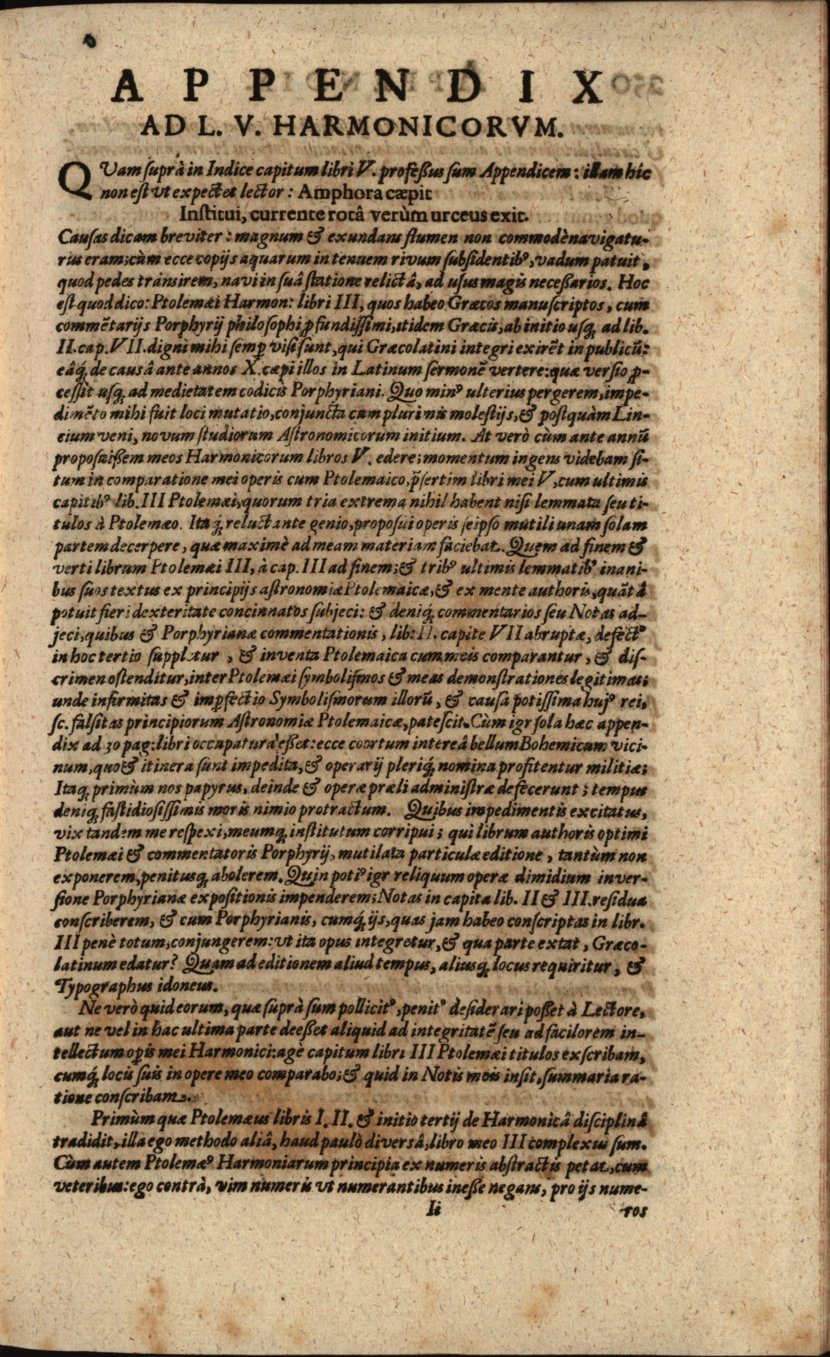 APPENDIX
AD L. V. HARMONICORVM.
QVam suprà in Indice capitum libri V. profeßus sum Appendicem: illam hîc
non est vt expectet lector: Amphora cæpit
Institui, currente rotâ verùm urceus exit.
Causas dicam breviter: magnum & exundans flumen non commodè navigatu-
rus eram; cùm ecce copijs aquarum in tenuem rivum subsidentibꝰ, vadum patuit,
quod pedes transirem, navi in suâ statione relictâ, ad usus magis neceßarios. Hoc
est quod dico: Ptolemæi Harmon: libri III, quos habeo Græcos manuscriptos, cum
commētarijs Porphyrij philosophi ꝓfundissimi, itidem Græcis, ab initio usq́; ad lib.
II. cap. VII. digni mihi semꝑ visi sunt, qui Græcolatini integri exirēt in publicū:
eâq́; de causâ ante annos X. cæpi illos in Latinum sermonē vertere: quæ versio ꝓ-
cessit usq́; ad medietatem codicis Porphyriani. Quo minꝰ ulterius pergerem, impe-
dimēto mihi fuit loci mutatio, conjuncta cum plurimis molestijs, & postquàm Lin-
cium veni, novum studiorum Astronomicorum initium. At verò cùm ante annū
proposuißem meos Harmonicorum libros V. edere; momentum ingens videbam si-
tum in comparatione mei operis cum Ptolemaico, p̄sertim libri mei V, cum ultimis
capitibꝰ lib. III Ptolemæi, quorum tria extrema nihil habent nisi lemmata seu ti-
tulos à Ptolemæo. Itaq́; reluctante genio, proposui operis seipso mutili unam solam
partem decerpere, quæ maximè ad meam materiam faciebat. Quem ad finem &
verti librum Ptolemæi III, à cap. III ad finem; & tribꝰ ultimis lemmatibꝰ inani-
bus suos textus ex principijs astronomiæ Ptolemaicæ, & ex mente authoris, quātâ
potuit fieri dexteritate concinnatos subjeci: & deniq́; commentarios seu Notas ad-
jeci, quibus & Porphyrianæ commentationis, lib: II. capite VII abruptæ, defectꝰ
in hoc tertio supplētur, & inventa Ptolemaica cum meis comparantur, & dis-
crimen ostenditur, inter Ptolemæi symbolismos & meas demonstrationes legitimas;
unde infirmitas & imꝑfectio Symbolismorum illorū, & causa potissima hujꝰ rei,
sc. falsitas principiorum Astronomiæ Ptolemaicæ, patescit. Cùm igr sola hæc appen-
dix ad 30 pag: libri occupatura eßet: ecce coortum intereâ bellum Bohemicum vici-
num, quo & itinera sunt impedita, & operarij pleriq́; nomina profitentur militiæ;
Itaq́; primùm nos papyrus, deinde & operæ præli administræ defecerunt; tempus
deniq́; fastidiosissimis moris nimio protractum. Quibus impedimentis excitatus,
vix tandem me respexi, meumq́; institutum corripui; qui librum authoris optimi
Ptolemæi & commentatoris Porphyrij, mutilata particulæ editione, tantùm non
exponerem, penitusq́; abolerem. Quin potiꝰ igr reliquum operæ dimidium in ver-
sione Porphyrianæ expositionis impenderem; Notas in capita lib. II & III. residua
conscriberem, & cum Porphyrianis, cumq́; ijs, quas jam habeo conscriptas in libr.
III penè totum, conjungerem: vt ita opus integretur, & qua parte extat, Græco-
latinum edatur? Quam ad editionem aliud tempus, aliusq́; locus requiritur, &
Typographus idoneus.
Ne verò quid eorum, quæ suprà sum pollicitꝰ, penitꝰ desiderari poßet à Lectore,
aut ne vel in hac ultima parte deeßet aliquid ad integritatē seu ad facilorem in-
tellectum opis mei Harmonici: agè capitum libri III Ptolemæi titulos exscribam,
cumq́; locis suis in opere meo comparabo; & quid in Notis meis insit, summaria ra-
tione conscribam.
Primùm quæ Ptolemæus libris I. II. & initio tertij de Harmonicâ disciplinâ
tradidit, illa ego methodo aliâ, haud paulò diversâ, libro meo III complexus sum.
Cùm autem Ptolemæꝰ Harmoniarum principia ex numeris abstractis petat, cum
veteribus: ego contrà, vim numeris vt numerantibus ineße negans, pro ijs nume-
Ii ros